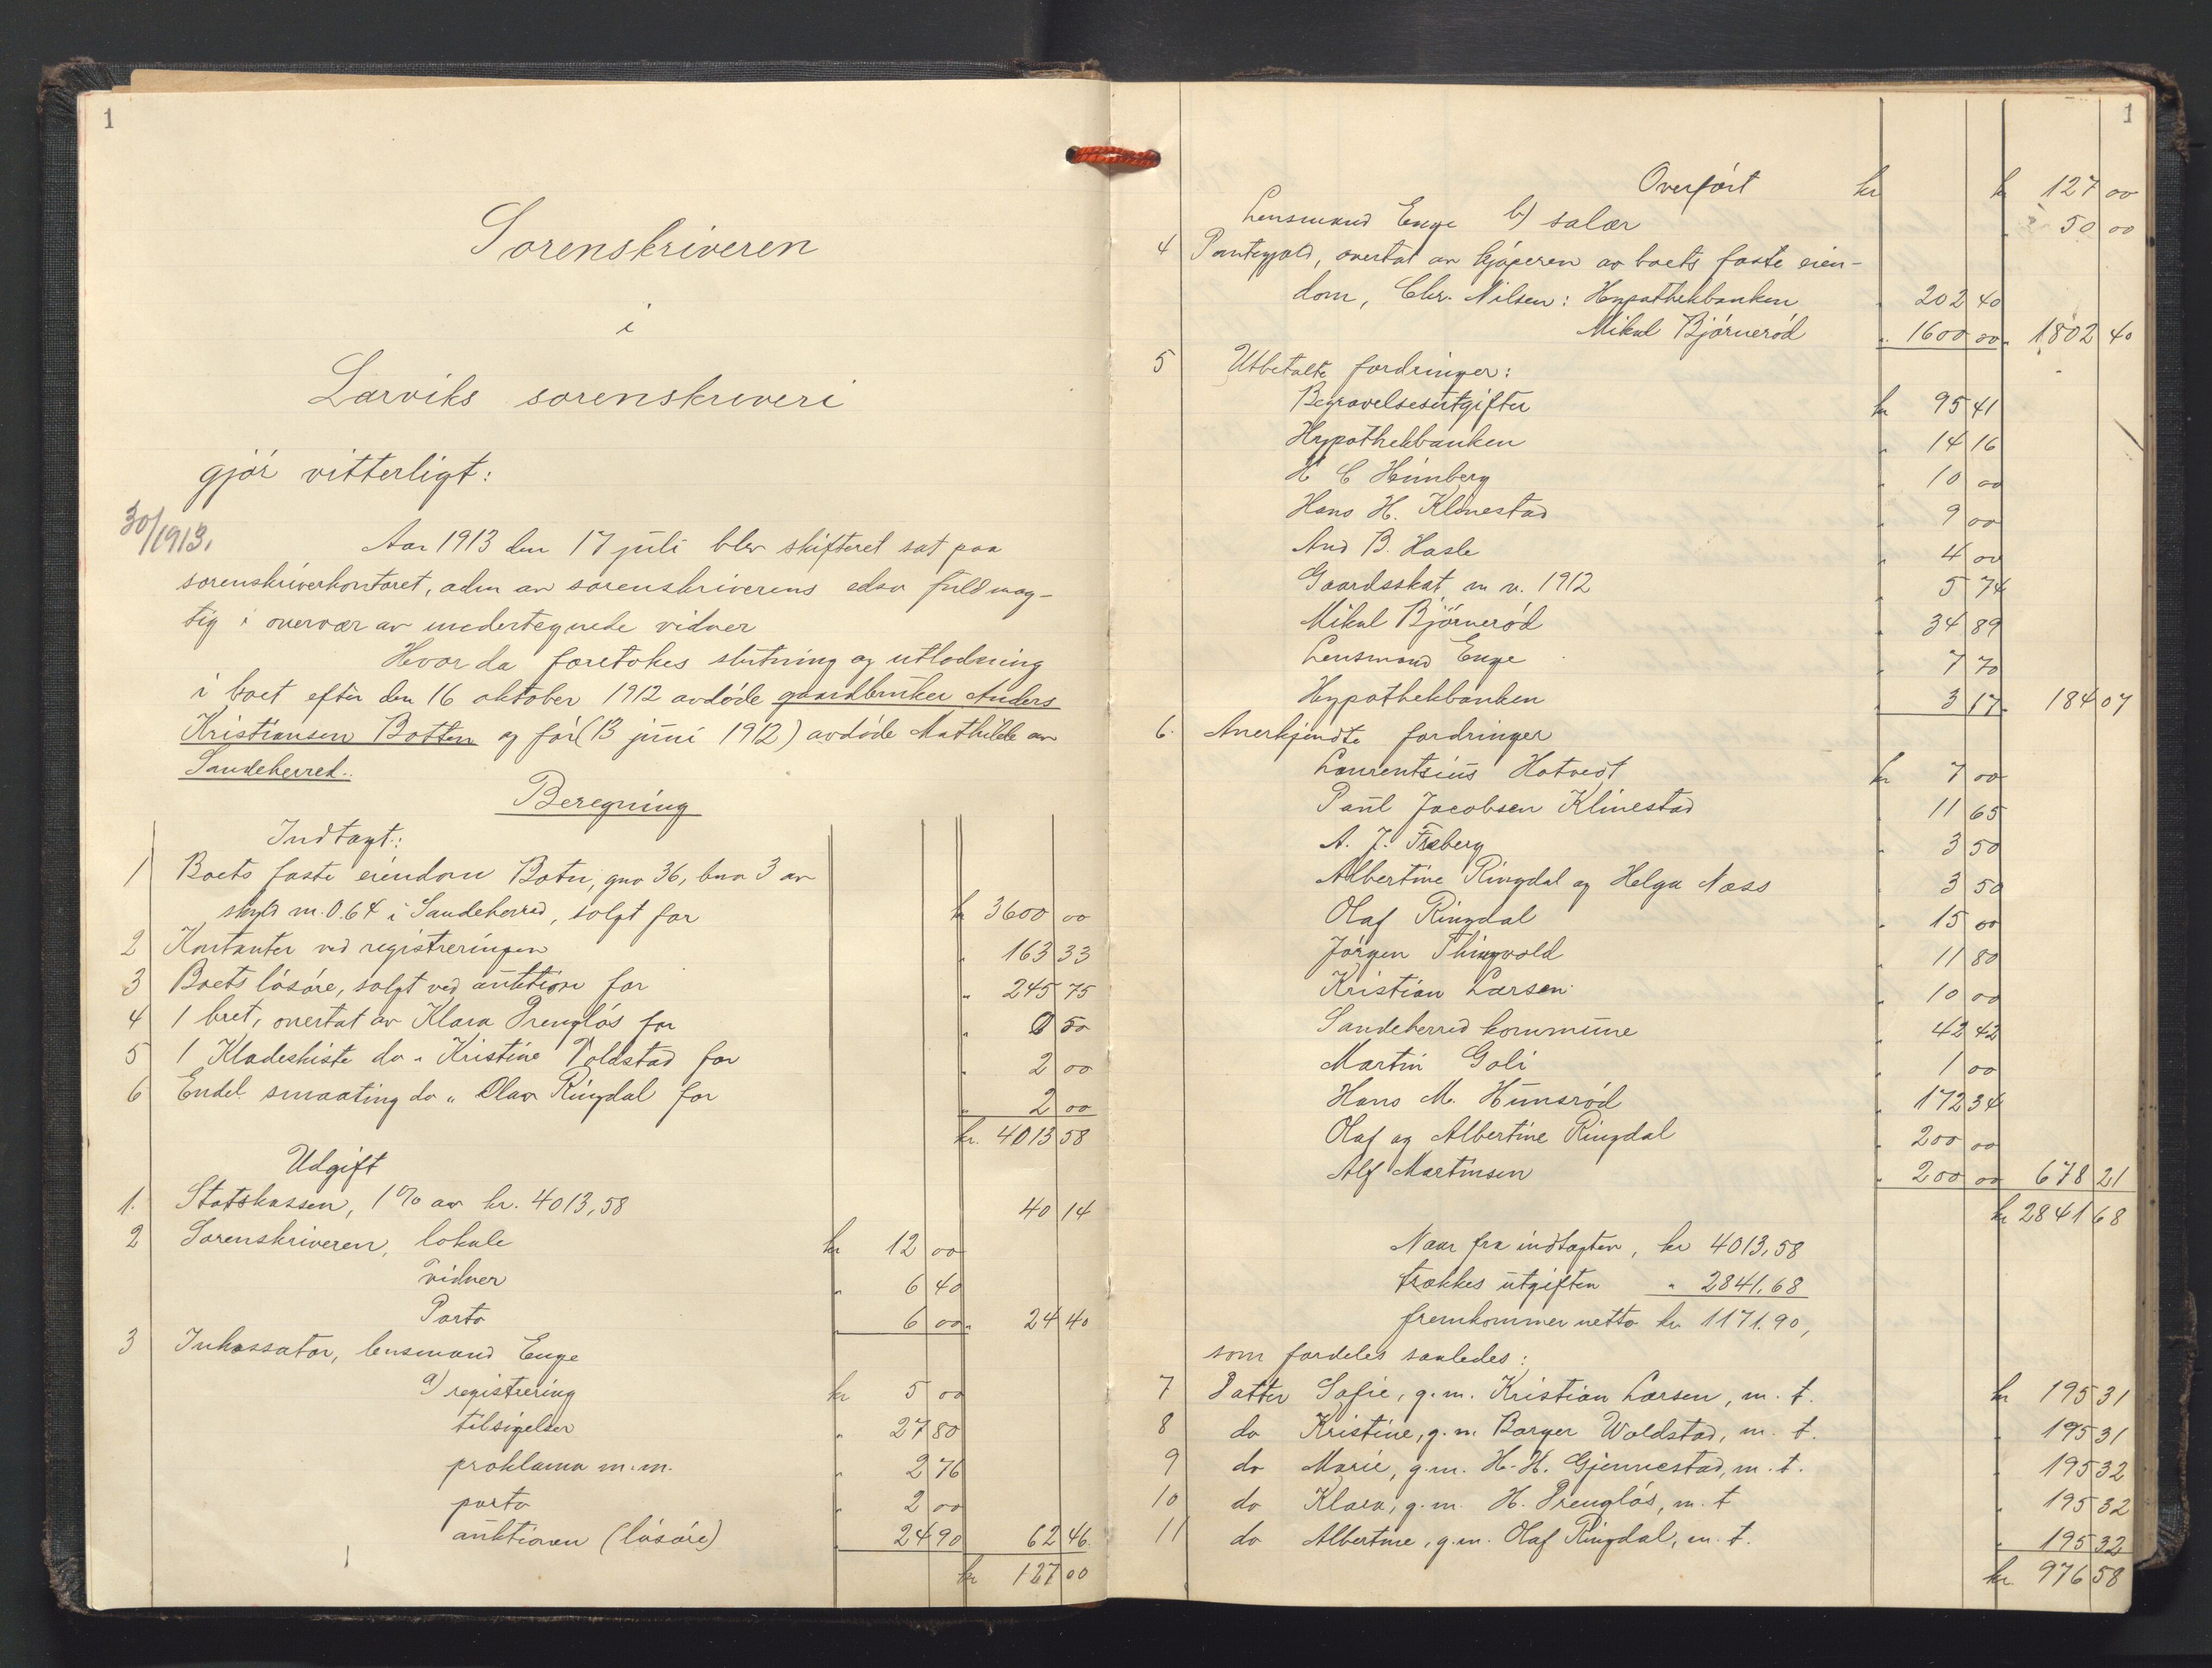 1
Sorenskriveren
i
Larviks sorenskriveri
gjör vitterligt:
30/1913.
Aar 1913 den 17 juli blev skifteret sat paa
sorenskriverkontoret, adm av sorenskriverens edsv fuldmæg-
tig i overvær av undertegnede vidner
Hvor da foretokes slutning og utlodning
i boet efter den 16 oktober 1912 avdöde gaardbruker Anders
Kristiansen Botten og för (13 juni 1912) avdöde Mathilde av
Sandeherred.
Beregning
Indtægt:
1 Boets faste eiendom Boten, gno 36, bno 3 av
skyld m. 0.64 i Sandeherred, solgt for kr 3600 00
2 Kontanter ved registreringen " 163 33
3 Boets lösöre, solgt ved auktion for " 245 75
4 1 bret, overtat av Klara Prenglös for " 0 50
5 1 Klædeskiste do " Kristine Voldstad for " 2 00
6 Endel smaating do " Olav Ringdal for " 2 00
kr. 4013 58
Udgift
1. Statskassen, 1% av kr. 4013,58 40 14
2 Sorenskriveren, lokale kr 12 00
vidner " 6 40
Porto " 6 00 " 24 40
3 Inkassator, lensmand Enge
a) registrering kr 5 00
tilsigelser " 27 80
proklama m.m. " 2 76
porto " 2 00
auktionen (lösöre) " 24 90 62 46.
kr 127 00
1
Overfört kr kr 127 00
Lensmand Enge b) salær " 50 00
4 Pantegjæld, overtat av kjöperen av boets faste eien-
dom, Chr. Nilsen: Hypothekbanken " 202 40
Mikal Björneröd " 1600 00 " 1802 40
5 Utbetalte fordringer:
Begravelsesutgifter kr 95 41
Hypothekbanken " 14 16
H C Heimberg " 10 00
Hans H. Klinestad " 9 00
And B. Hasle " 4 00
Gaardsskat m v. 1912 " 5 74
Mikal Björneröd " 34 89
Lensmand Enge " 7 70
Hypothekbanken " 3 17 " 184 07
6. Anerkjendte fordringer
Laurentsius Hotvedt kr 7 00
Paul Jacobsen Klinestad " 11 65
A. J. Freberg " 3 50
Albertine Ringdal og Helga Næss " 3 50
Olaf Ringdal " 15 00
Jörgen Thingvold " 11 80
Kristian Larsen " 10 00
Sandeherred kommune " 42 42
Martin Goli " 1 00
Hans M. Hunsröd " 172 34
Olaf og Albertine Ringdal " 200 00
Alf Martinsen " 200 00 " 678 21
kr 2841 68
Naar fra indtægten, kr 4013,58
trækkes utgiften " 2841,68
fremkommer netto kr 1171.90,
som fordeles saaledes:
7 Datter Sofie, g.m. Kristian Larsen, m. t. kr 195 31
8 do Kristine, g.m. Borger Woldstad, m. t. " 195 31
9 do Marie, g.m. H. H. Gjennestad, m. t. " 195 32
10 do Klara, g.m. H. Prenglös, m. t " 195 32
11 do Albertine, g.m. Olaf Ringdal, m. t. " 195 32
kr. 976 58